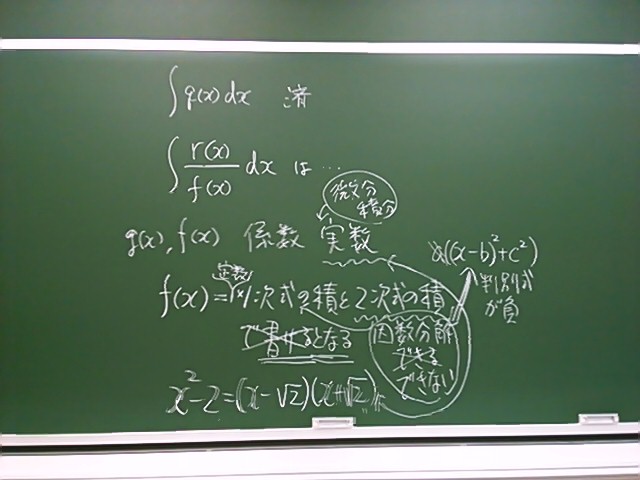 ∫ q(x) dx 済
∫ r(x)/f(x) dx は …
微分
積分
g(x), f(x) 係数 実数
a((x-b)²+c²)
定数
f(x) = 1次式の積と2次式の積
判別式
が負
で書けるとなる
因数分解
できる
できない
x²-2=(x-√2)(x+√2)